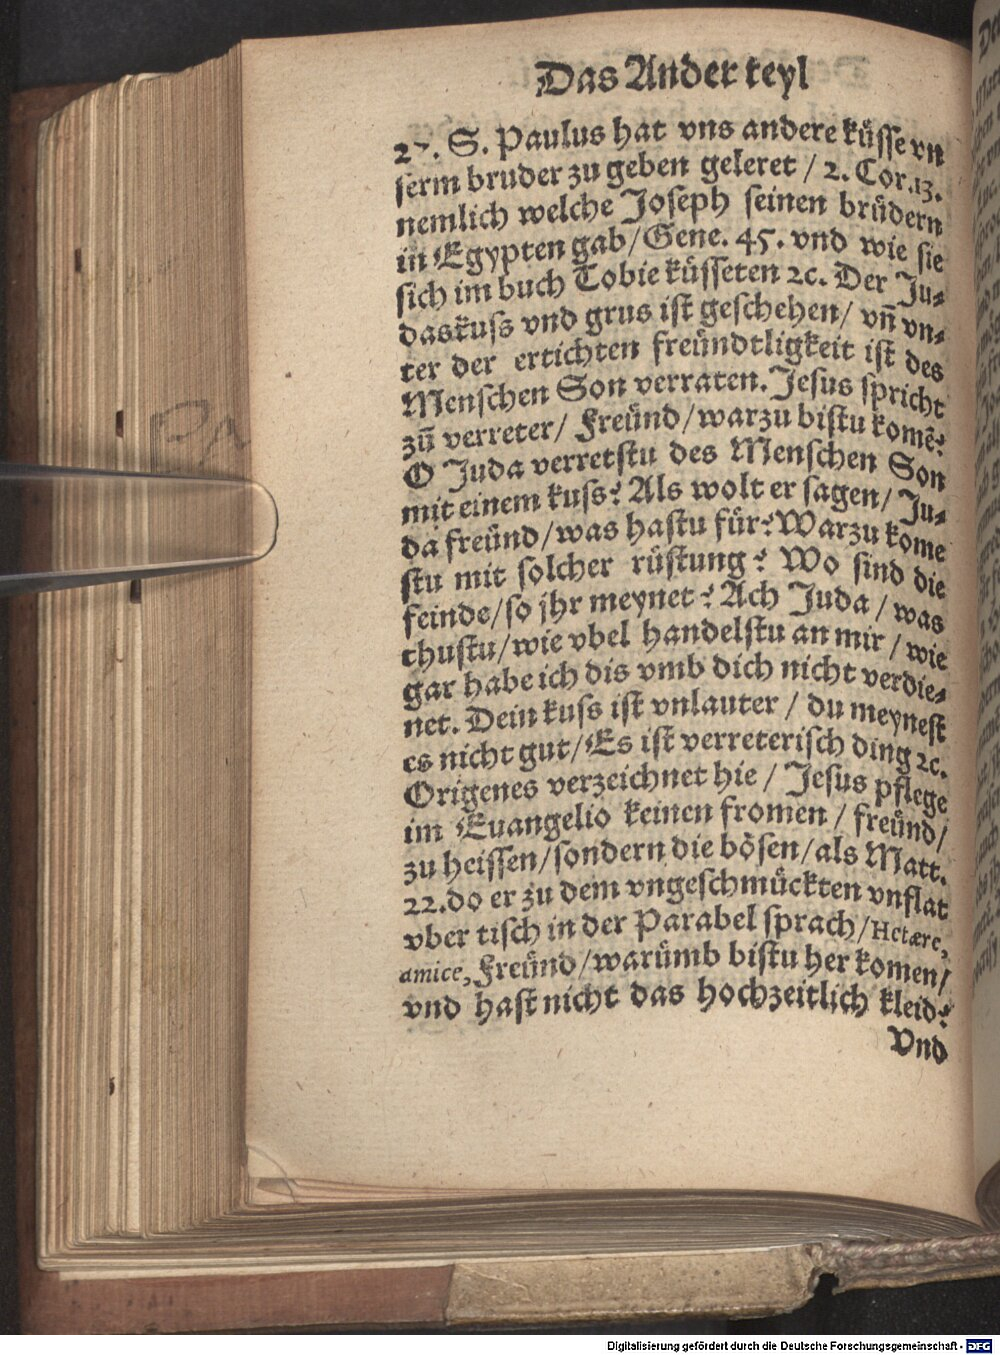 Das Ander teyl
27. S. Paulus hat vns andere küsse vn
serm bruder zu geben geleret / 2. Cor.13.
nemlich welche Joseph seinen brüdern
in Egypten gab/Gene. 45. vnd wie sie
sich im buch Tobie küsseten ꝛc. Der Ju⸗
daskuss vnd grus ist geschehen/ vn̄ vn⸗
ter der ertichten freündtligkeit ist des
Menschen Son verraten. Jesus spricht
zū verreter/ Freünd/warzu bistu komē?
O Juda verretstu des Menschen Son
mit einem kuss? Als wolt er sagen/ Ju⸗
da freünd/was hastu für? Warzu kome
stu mit solcher rüstung? Wo sind die
feinde/so jhr meynet? Ach Juda / was
thustu/wie vbel handelstu an mir / wie
gar habe ich dis vmb dich nicht verdie⸗
net. Dein kuss ist vnlauter / du meynest
es nicht gut/Es ist verreterisch ding ꝛc.
Origenes verzeichnet hie / Jesus pflege
im Euangelio keinen fromen / freünd/
zu heissen/sondern die bösen/als Matt.
22.do er zu dem vngeschmückten vnflat
vber tisch in der Parabel sprach/Hetære,
amice, Freünd/warümb bistu her komen/
vnd hast nicht das hochzeitlich kleid?
Vnd
Digitalisierung gefördert durch die Deutsche Forschungsgemeinschaft - DFG